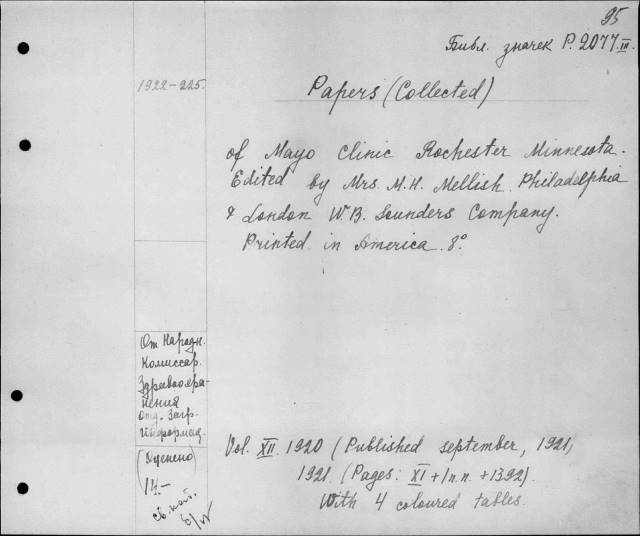 95
Библ. значек P. 2077.III.
1922-225.
Papers (Collected)
of Mayo Clinic Rochester Minnesota.
Edited by Mrs. M.H. Mellish. Philadelphia
& London W.B. Saunders Company.
Printed in America. 8°.
От Народн.
Комиссар.
Здравоохра-
нения
отд. Загр.
Информац.
(Оценено)
Vol. XII. 1920 (Published september, 1921)
1921. (Pages: XI + 1 n.n. + 1392).
With 4 coloured tables.